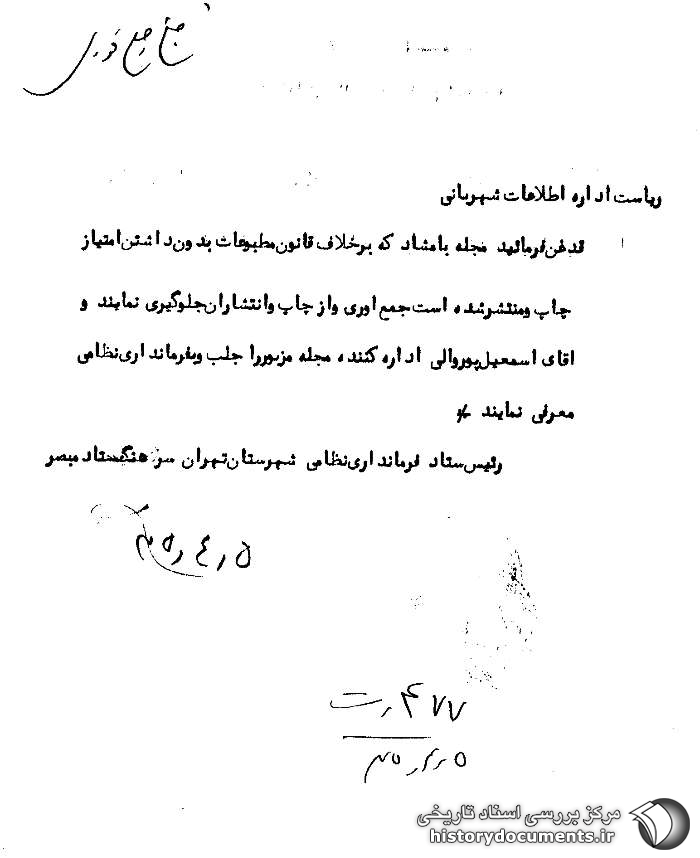 خیلی خیلی فوری
ریاست اداره اطلاعات شهربانی
قدغن فرمائید مجله بامشاد که برخلاف قانون مطبوعات بدون داشتن امتیاز
چاپ ومنتشرشده است جمع اوری واز چاپ وانتشاران جلوگیری نمایند و
اقای اسمعیل پوروالی اداره کننده مجله مزبوررا جلب وبفرمانداری نظامی
معرفی نمایند
رئیس ستاد فرمانداری نظامی شهرستان تهران سرهنگ ستاد مبصر
مرکز بررسی اسناد تاریخی
historydocuments.ir